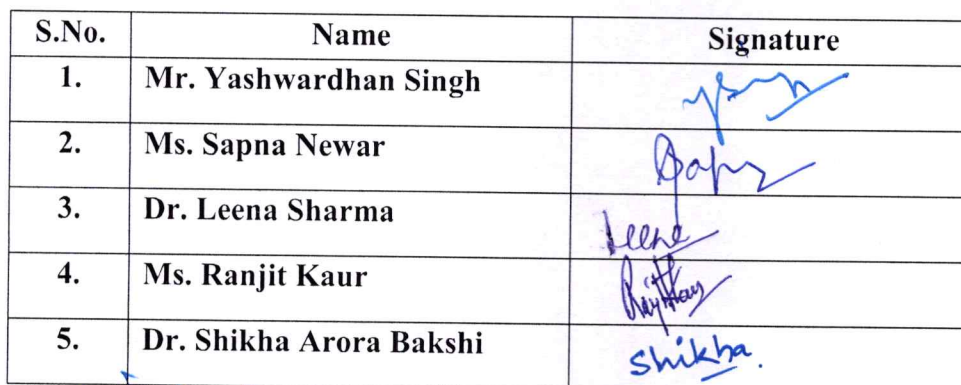 S.No. Name Signature
1. Mr. Yashwardhan Singh
2. Ms. Sapna Newar
3. Dr. Leena Sharma Leena
4. Ms. Ranjit Kaur
5. Dr. Shikha Arora Bakshi Shikha.